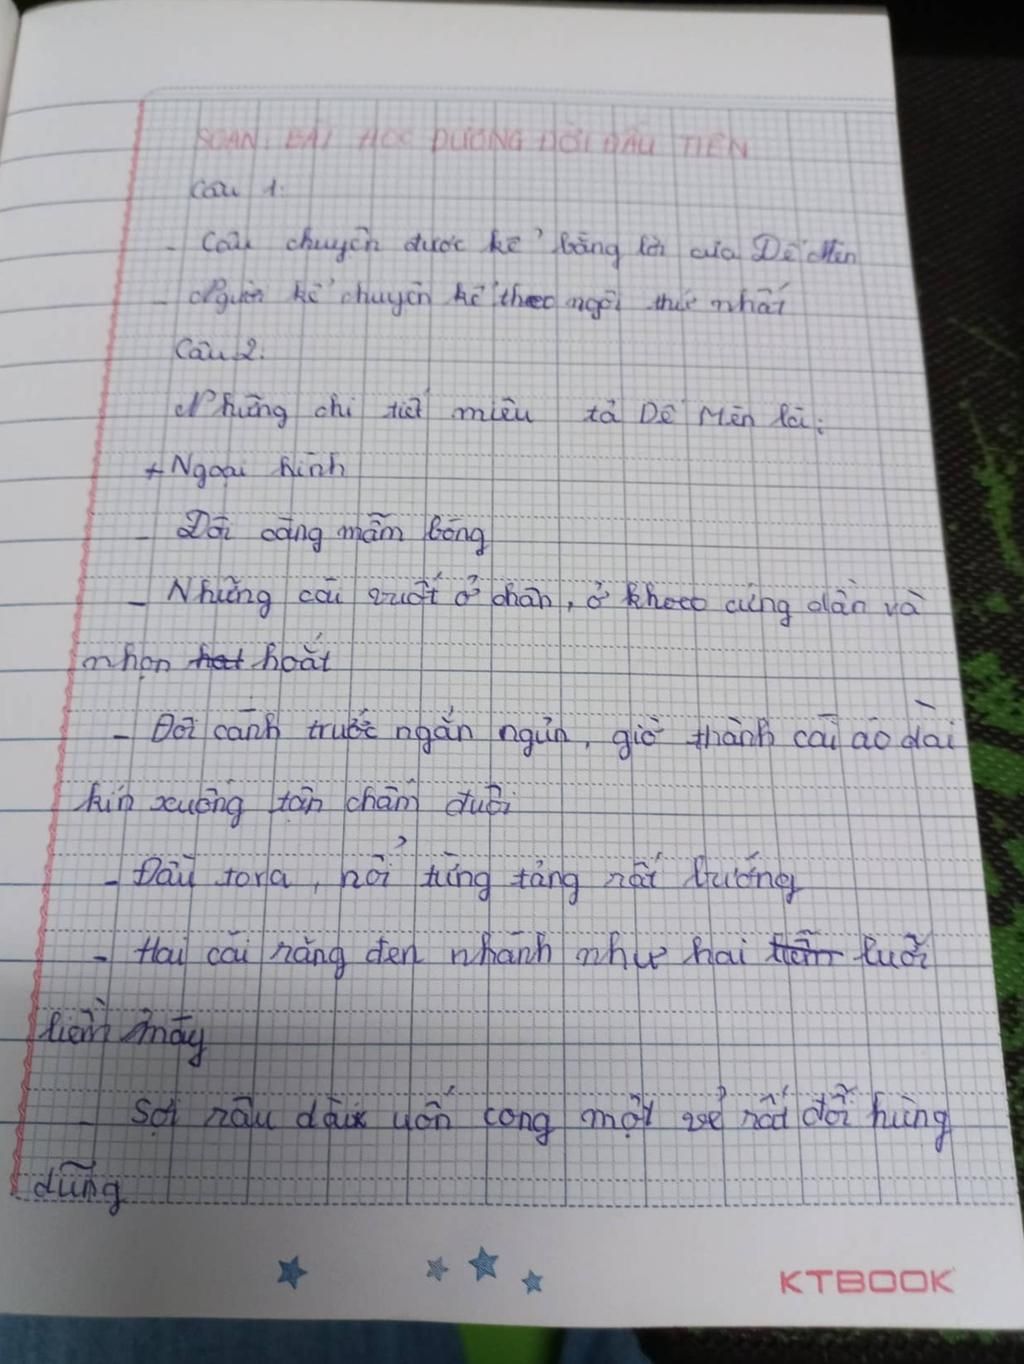 SOẠN: BÀI HỌC ĐƯỜNG ĐỜI ĐẦU TIÊN
Câu 1:
- Câu chuyện được kể bằng lời của Dế Mèn
- Người kể chuyện kể theo ngôi thứ nhất
Câu 2.
Những chi tiết miêu tả Dế Mèn là:
+ Ngoại hình
- Đôi càng mẫm bóng
- Những cái vuốt ở chân, ở khoeo cứng dần và
nhọn hoắt
- Đôi cánh trước ngắn ngủn, giờ thành cái áo dài
kín xuống tận chấm đuôi
- Đầu to ra, nổi từng tảng rất bướng
- Hai cái răng đen nhánh như hai lưỡi
liềm máy
- Sợi râu dài uốn cong một vẻ rất đỗi hùng
dũng
KTBOOK